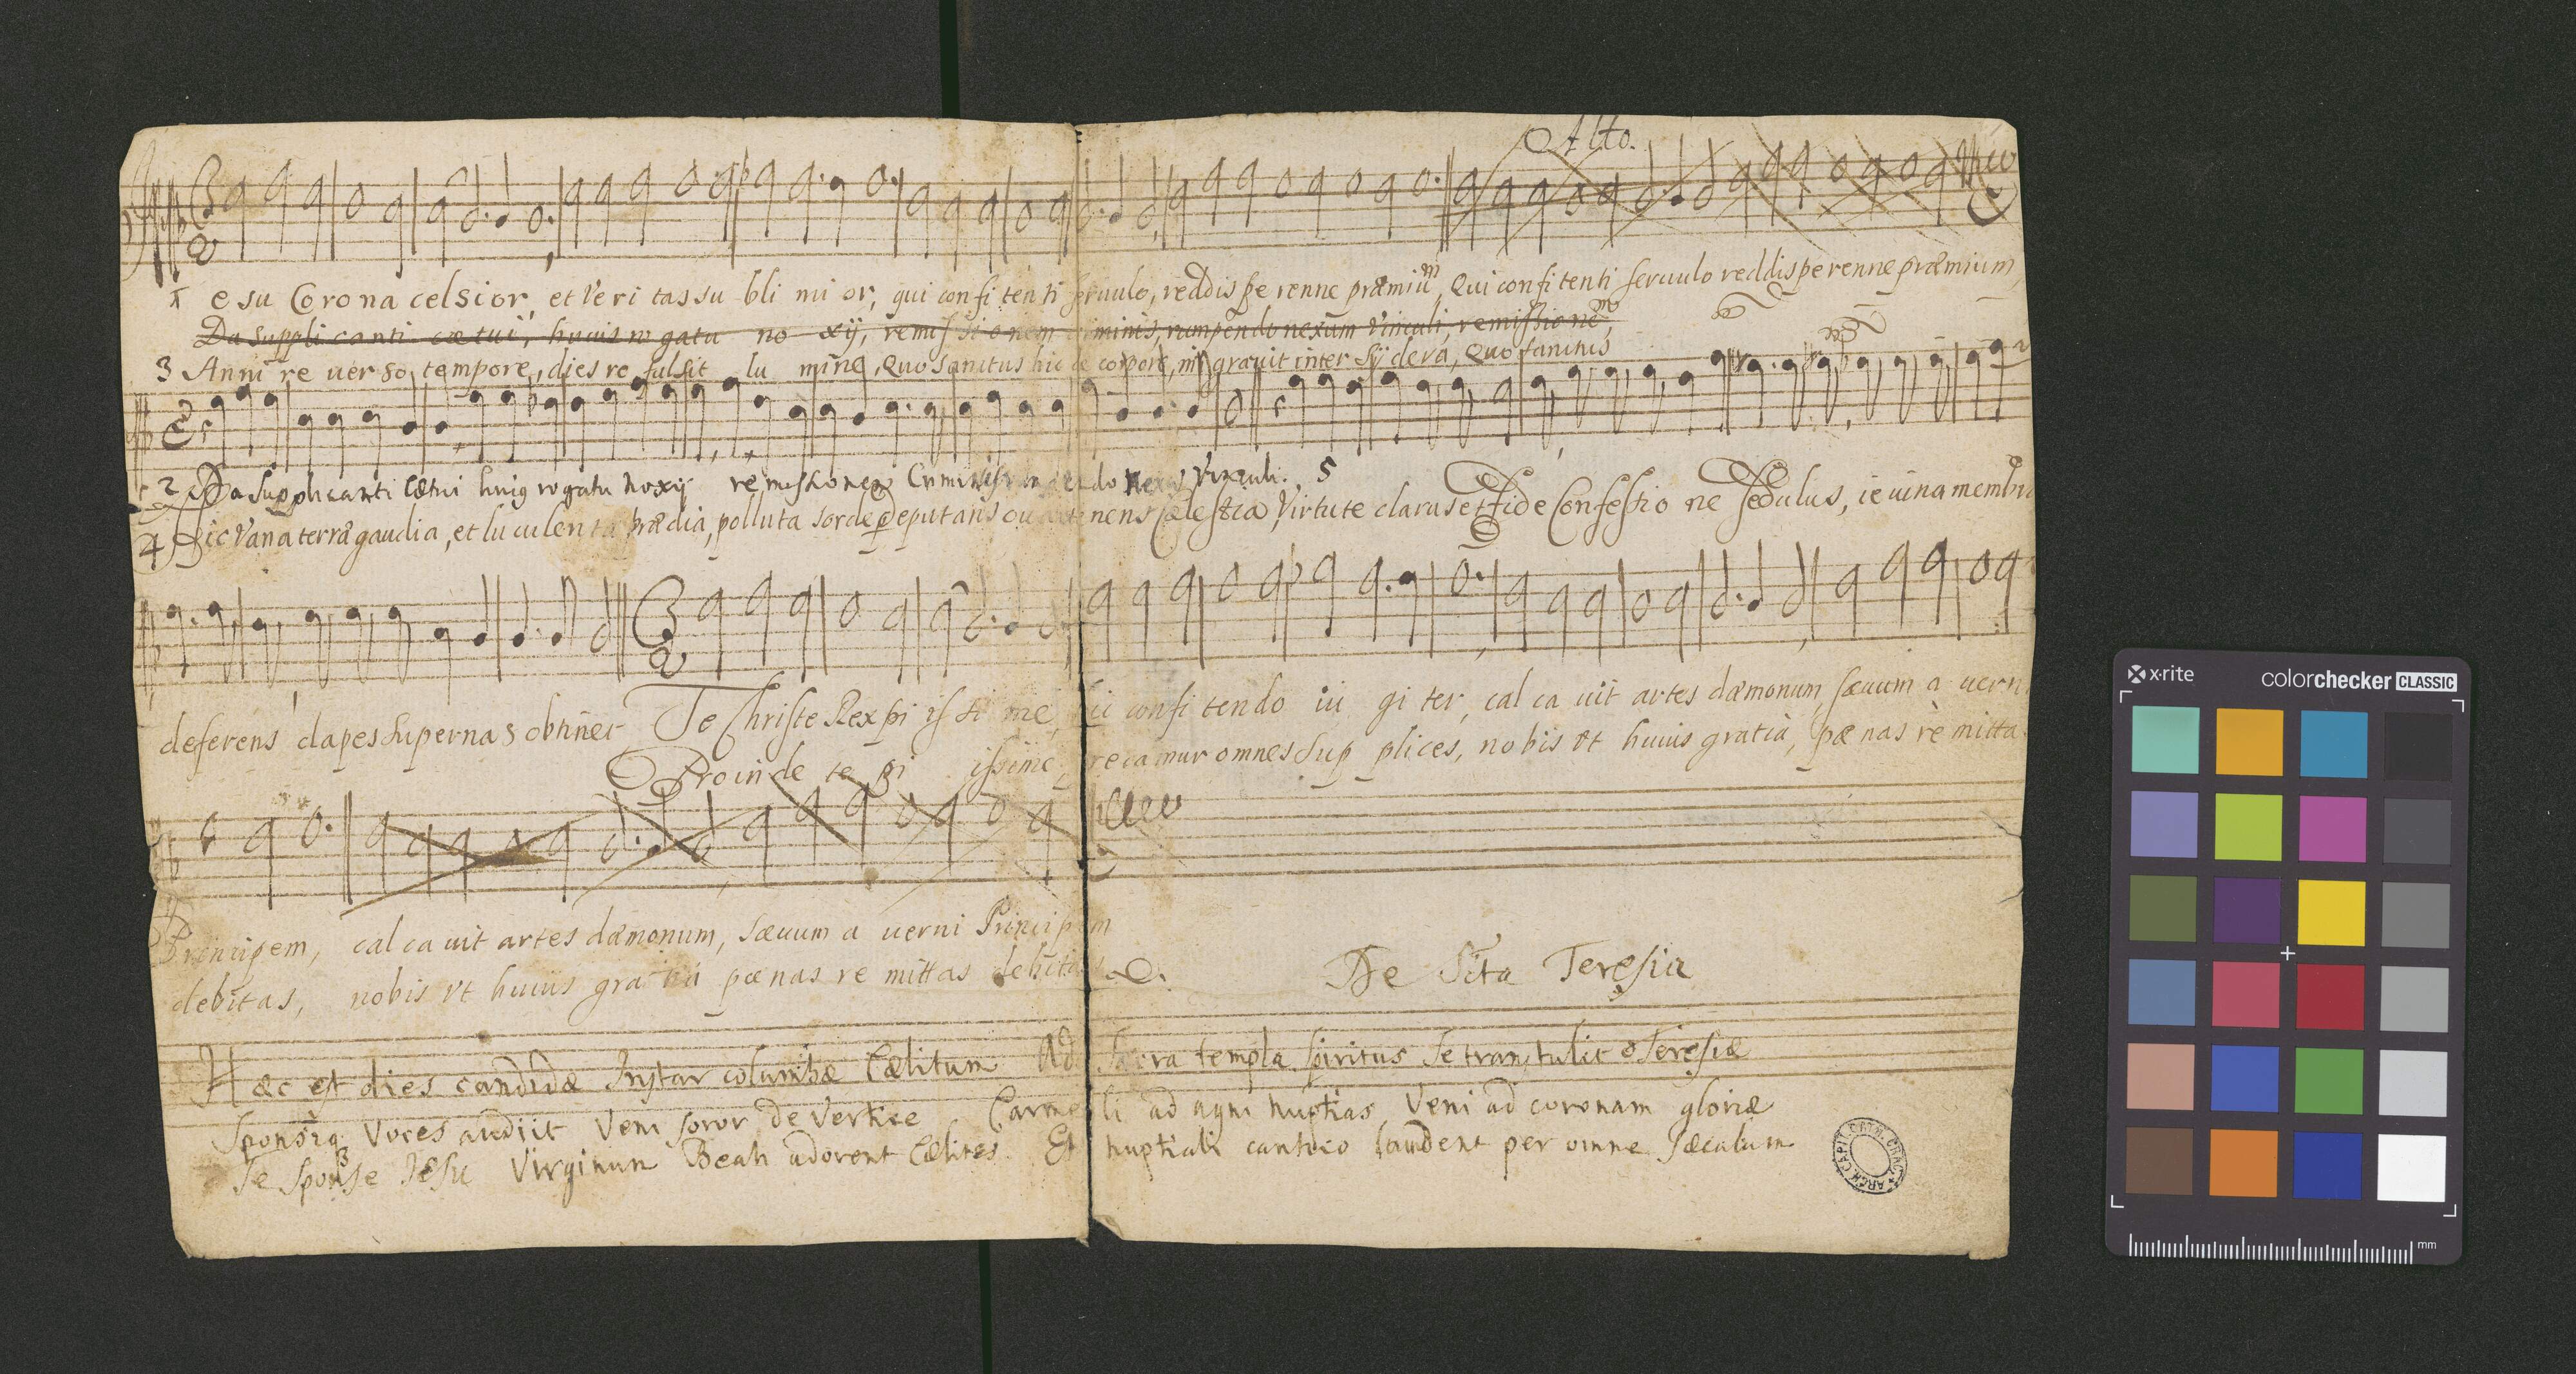 Alto.
1 esu Corona celsior, et Veri tas su bli mi or, qui confi tenti seruulo, reddis pe renne præmiũ, Qui confi tenti seruulo reddis perenne præmium,
Da suppli canti cœtui, huius ro gatu no xij, remis sionem criminis, rumpendo nexum vinculi, remissionẽ,
3 Anni re uer so tempore, dies re fulsit lu mine, Quo sanctus hic de corpore, mi grauit inter sydera, Quo sanctus
2 Da supplicanti Cætui huiq rogatu noxij remissionem Criminis rumpendo nexus Vinculi. 5
4 Hic Vana terræ gaudia, et luculenta prædia, polluta sorde deputans ouat tenens Cælestia, Virtute clarus et fide Confessio ne sedulus, ieiuna membra
deferens dapes supernas obtinet Te Christe Rex pi is si me, hic confi tendo iu gi ter, cal ca uit artes dæmonum, sæuum a uerni
Proin de te pi issime, precamur omnes sup plices, nobis vt huius gratia, pænas rè mittas
Principem, cal ca uit artes dæmonum, sæuum a uerni Principem
debitas, nobis vt huius gratia pænas re mittas debitas
De Scta Teresia
Hæc est dies candidæ Instar columbæ Cælitum Ad Sacra templa spiritus Se transtulit Teresiæ
Sponsiq Voces audiit Veni soror de Vertice Carmeli ad agni nuptias Veni ad coronam gloriæ
Te Sponse Jesu Virginum Beati adorent Cælites Et nuptiali cantico laudent per omne Sæculum
ARCH. CAPIT. CATH. CRAC.
x·rite
colorchecker CLASSIC
mm